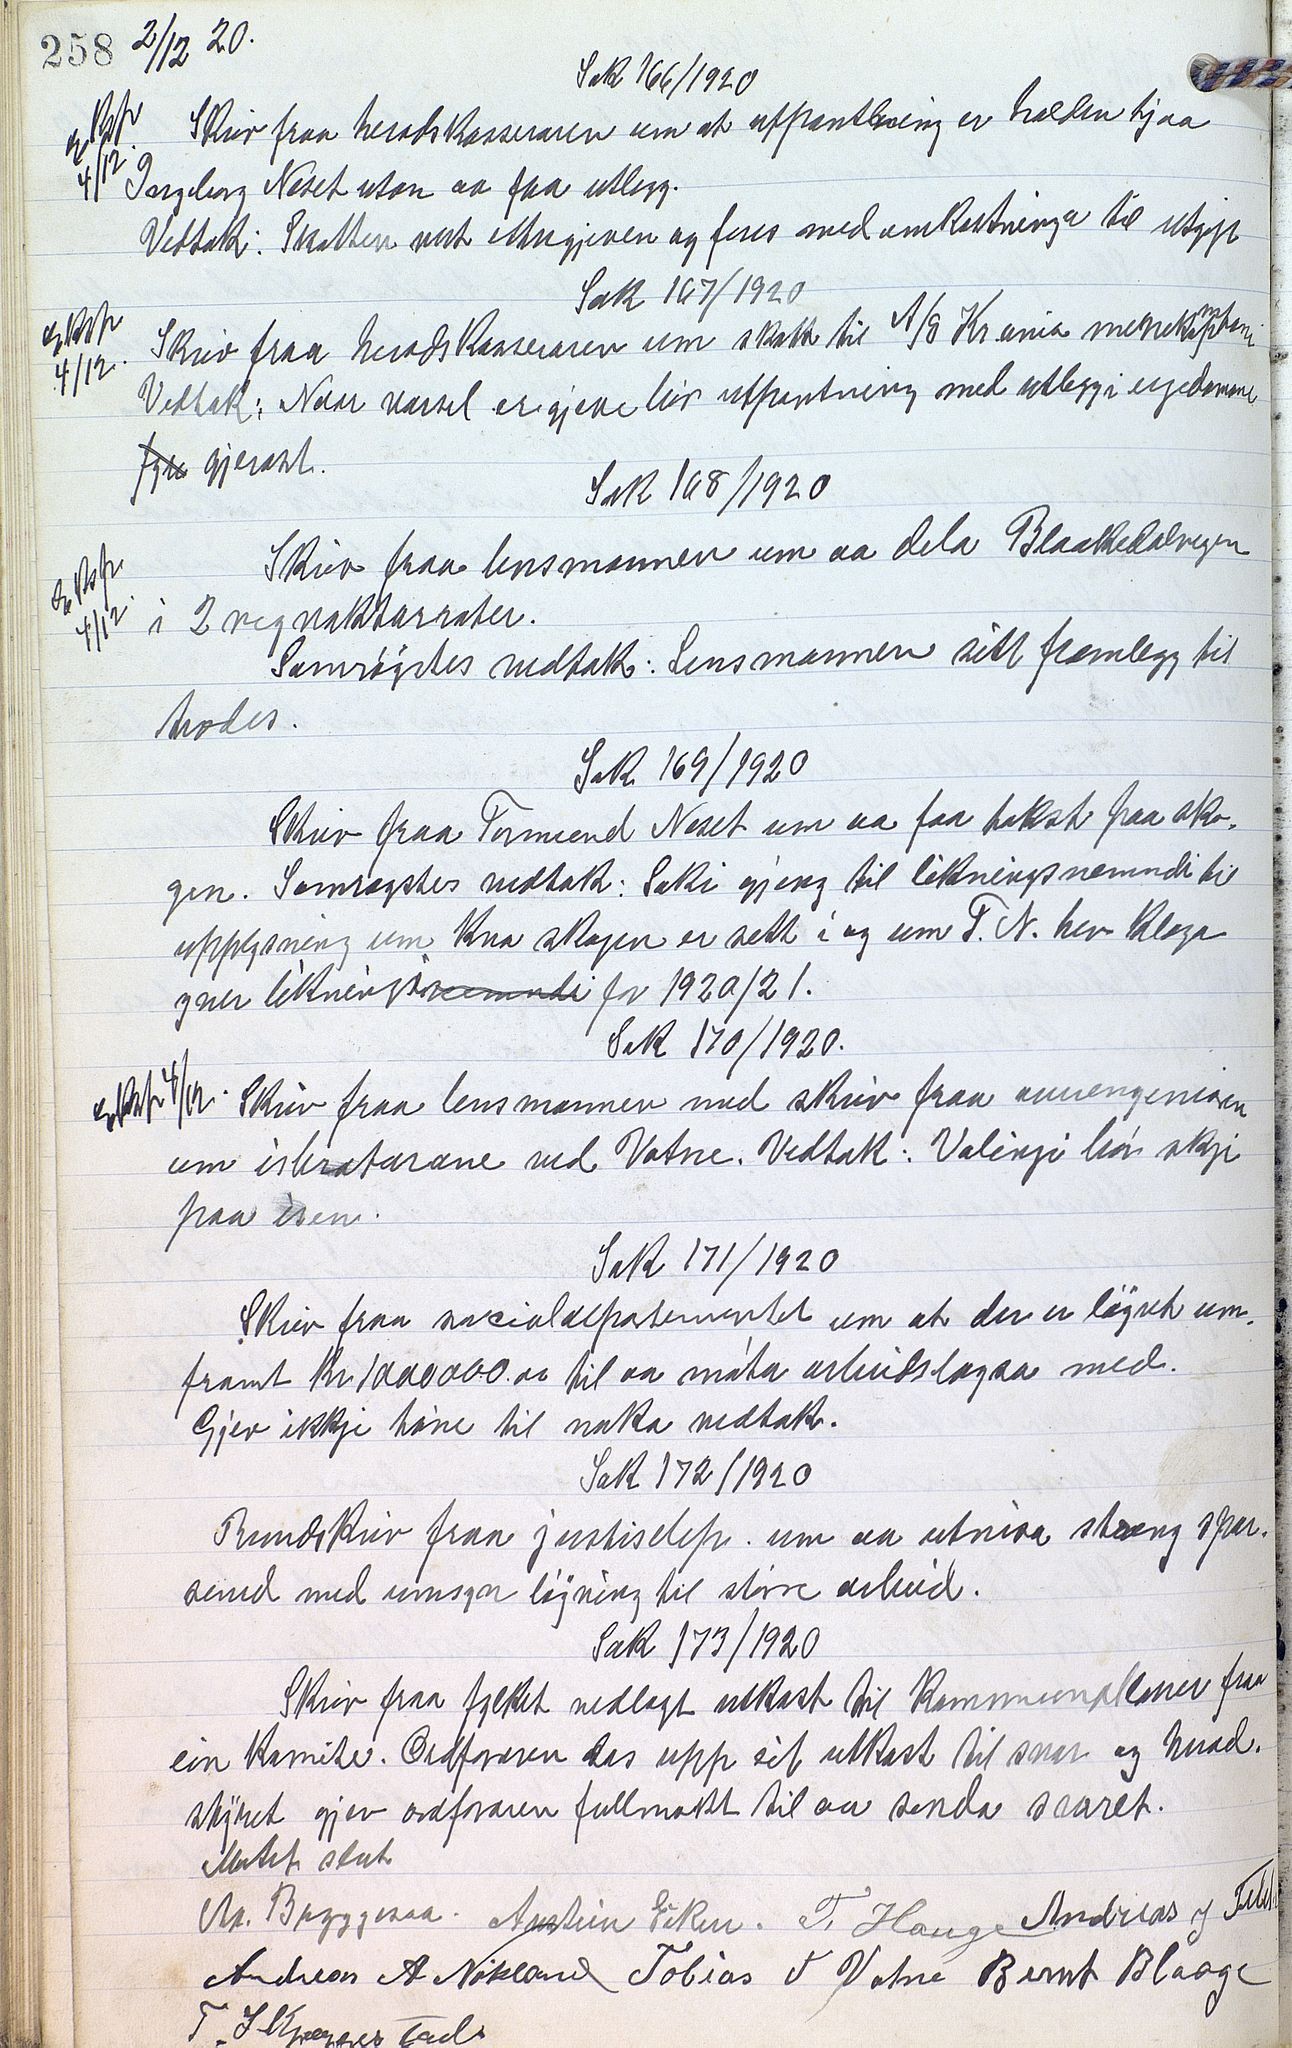 258 2/12 20.
Sak 166/1920
Skriv fraa heradskasseraren um at utpantning er halden hjaa
4/12 Ingeborg Neset utan aa faa utlegg.
Vedtak: Skatten vert ettergjeven og føres med umkostninga til utgift
Sak 167/1920
Skriv fraa heradskasseraren um skatt til A/S Kr.ania
4/12. Vedtak: Naar varsel er gjeve bør utpantning med utlegg i eigedomane
gjerast.
Sak 168/1920
Skriv fraa lensmannen um aa dela Blaakedalvegen
4/12. i 2 vegvaktarroter.
Samrøystes vedtak: Lensmannen sitt framlegg til
trædes.
Sak 169/1920
Skriv fraa Tormund Neset um aa faa takst paa sko-
gen. Samrøystes vedtak: Saki gjeng til likningsnemndi til
upplysning um kva skogen er sett i og um T. N. hev klaga
yver liknings nemndi for 1920/21.
Sak 170/1920.
4/12. Skriv fraa lensmannen med skriv fraa
um isbrytarane ved Vatne. Vedtak: bør skje
paa isen.
Sak 171/1920
Skriv fraa socialdepartementet um at der er løyvt um-
framt Kr. 1000000.00 til aa møta arbeidsløysa med.
Gjev ikkje høve til noko vedtak.
Sak 172/1920
Rundskriv fraa justisdep. um aa utvisa streng spar-
semd med umsyn løyving til større arbeid.
Sak 173/1920
Skriv fraa fylket vedlagt utkast til Kommuneplaner fraa
ein komite. Ordføraren las upp eit utkast til svar og herad-
styret gjev ordføraren fullmakt til aa senda svaret.
Møtet slut
Aa. Byggesaa. Austein Eiken. T. Hauge Andreas J
Andreas A Nøkland Tobias T Vatne Bernt Blaage
T. S.